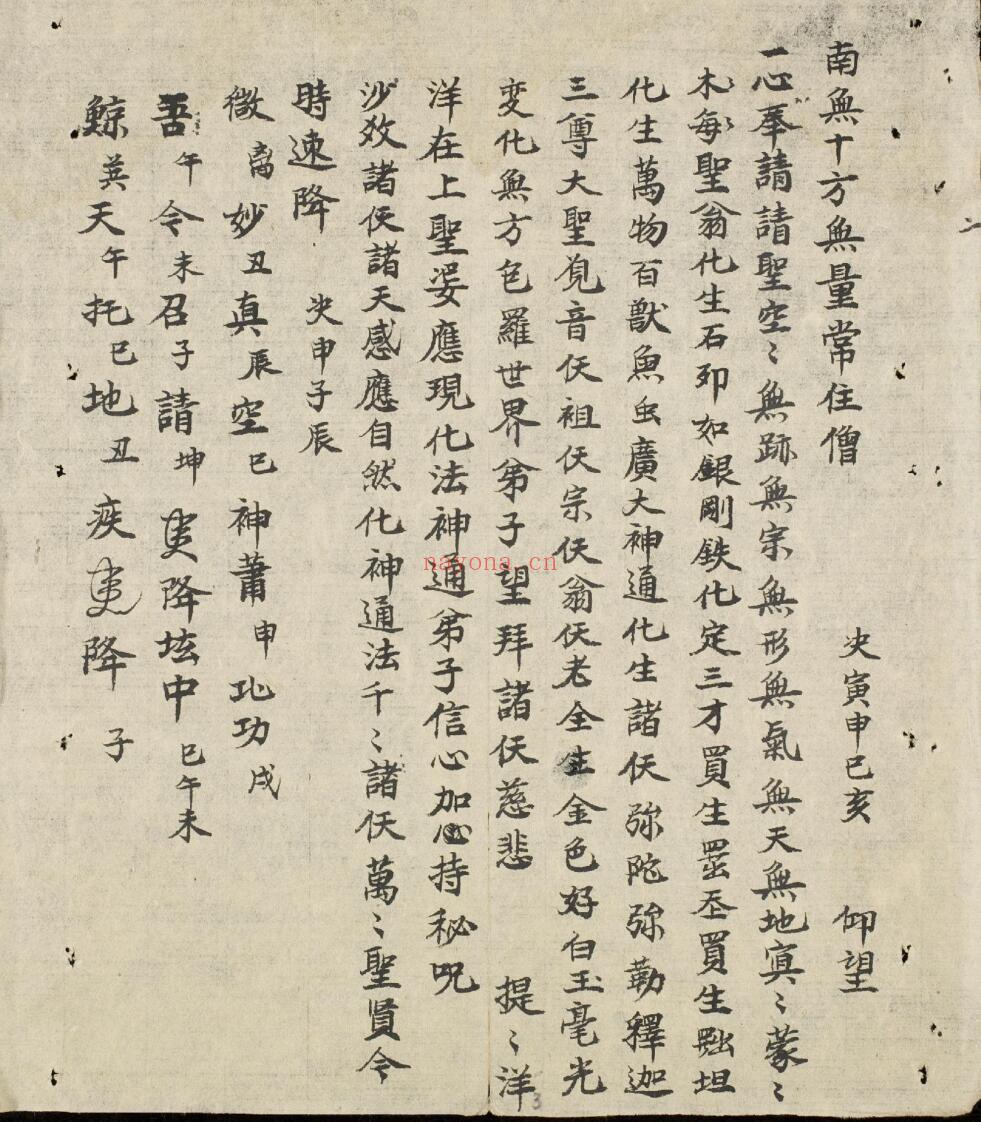 南無十方無量常住僧 決寅申巳亥 仰望
一心奉請請聖空〻無跡無宗無形無氣無天無地寞〻蒙〻
木每聖翁化生石卵如銀剛鉄化定三才買生 買生 坦
化生萬物百獸魚虫廣大神通化生諸仸弥陀弥勒釋迦
三尊大聖覓音仸祖仸宗仸翁仸老全生金色好白玉毫光
变化無方包羅世界弟子望拜諸仸慈悲 提〻洋
洋在上聖姿應現化法神通弟子信心加心持秘呪
沙效諸仸諸天感應自然化神通法千〻諸仸萬〻聖賢令
時速降 決申子辰
微 离 妙 丑 真 辰 空 巳 神蕭 申 化功 戌
吾 午 令 未 召 子 請 坤 降坛中 巳午未
鯨 英 天 午 托 巳 地 丑 疾 降 子
nayona.cn
3